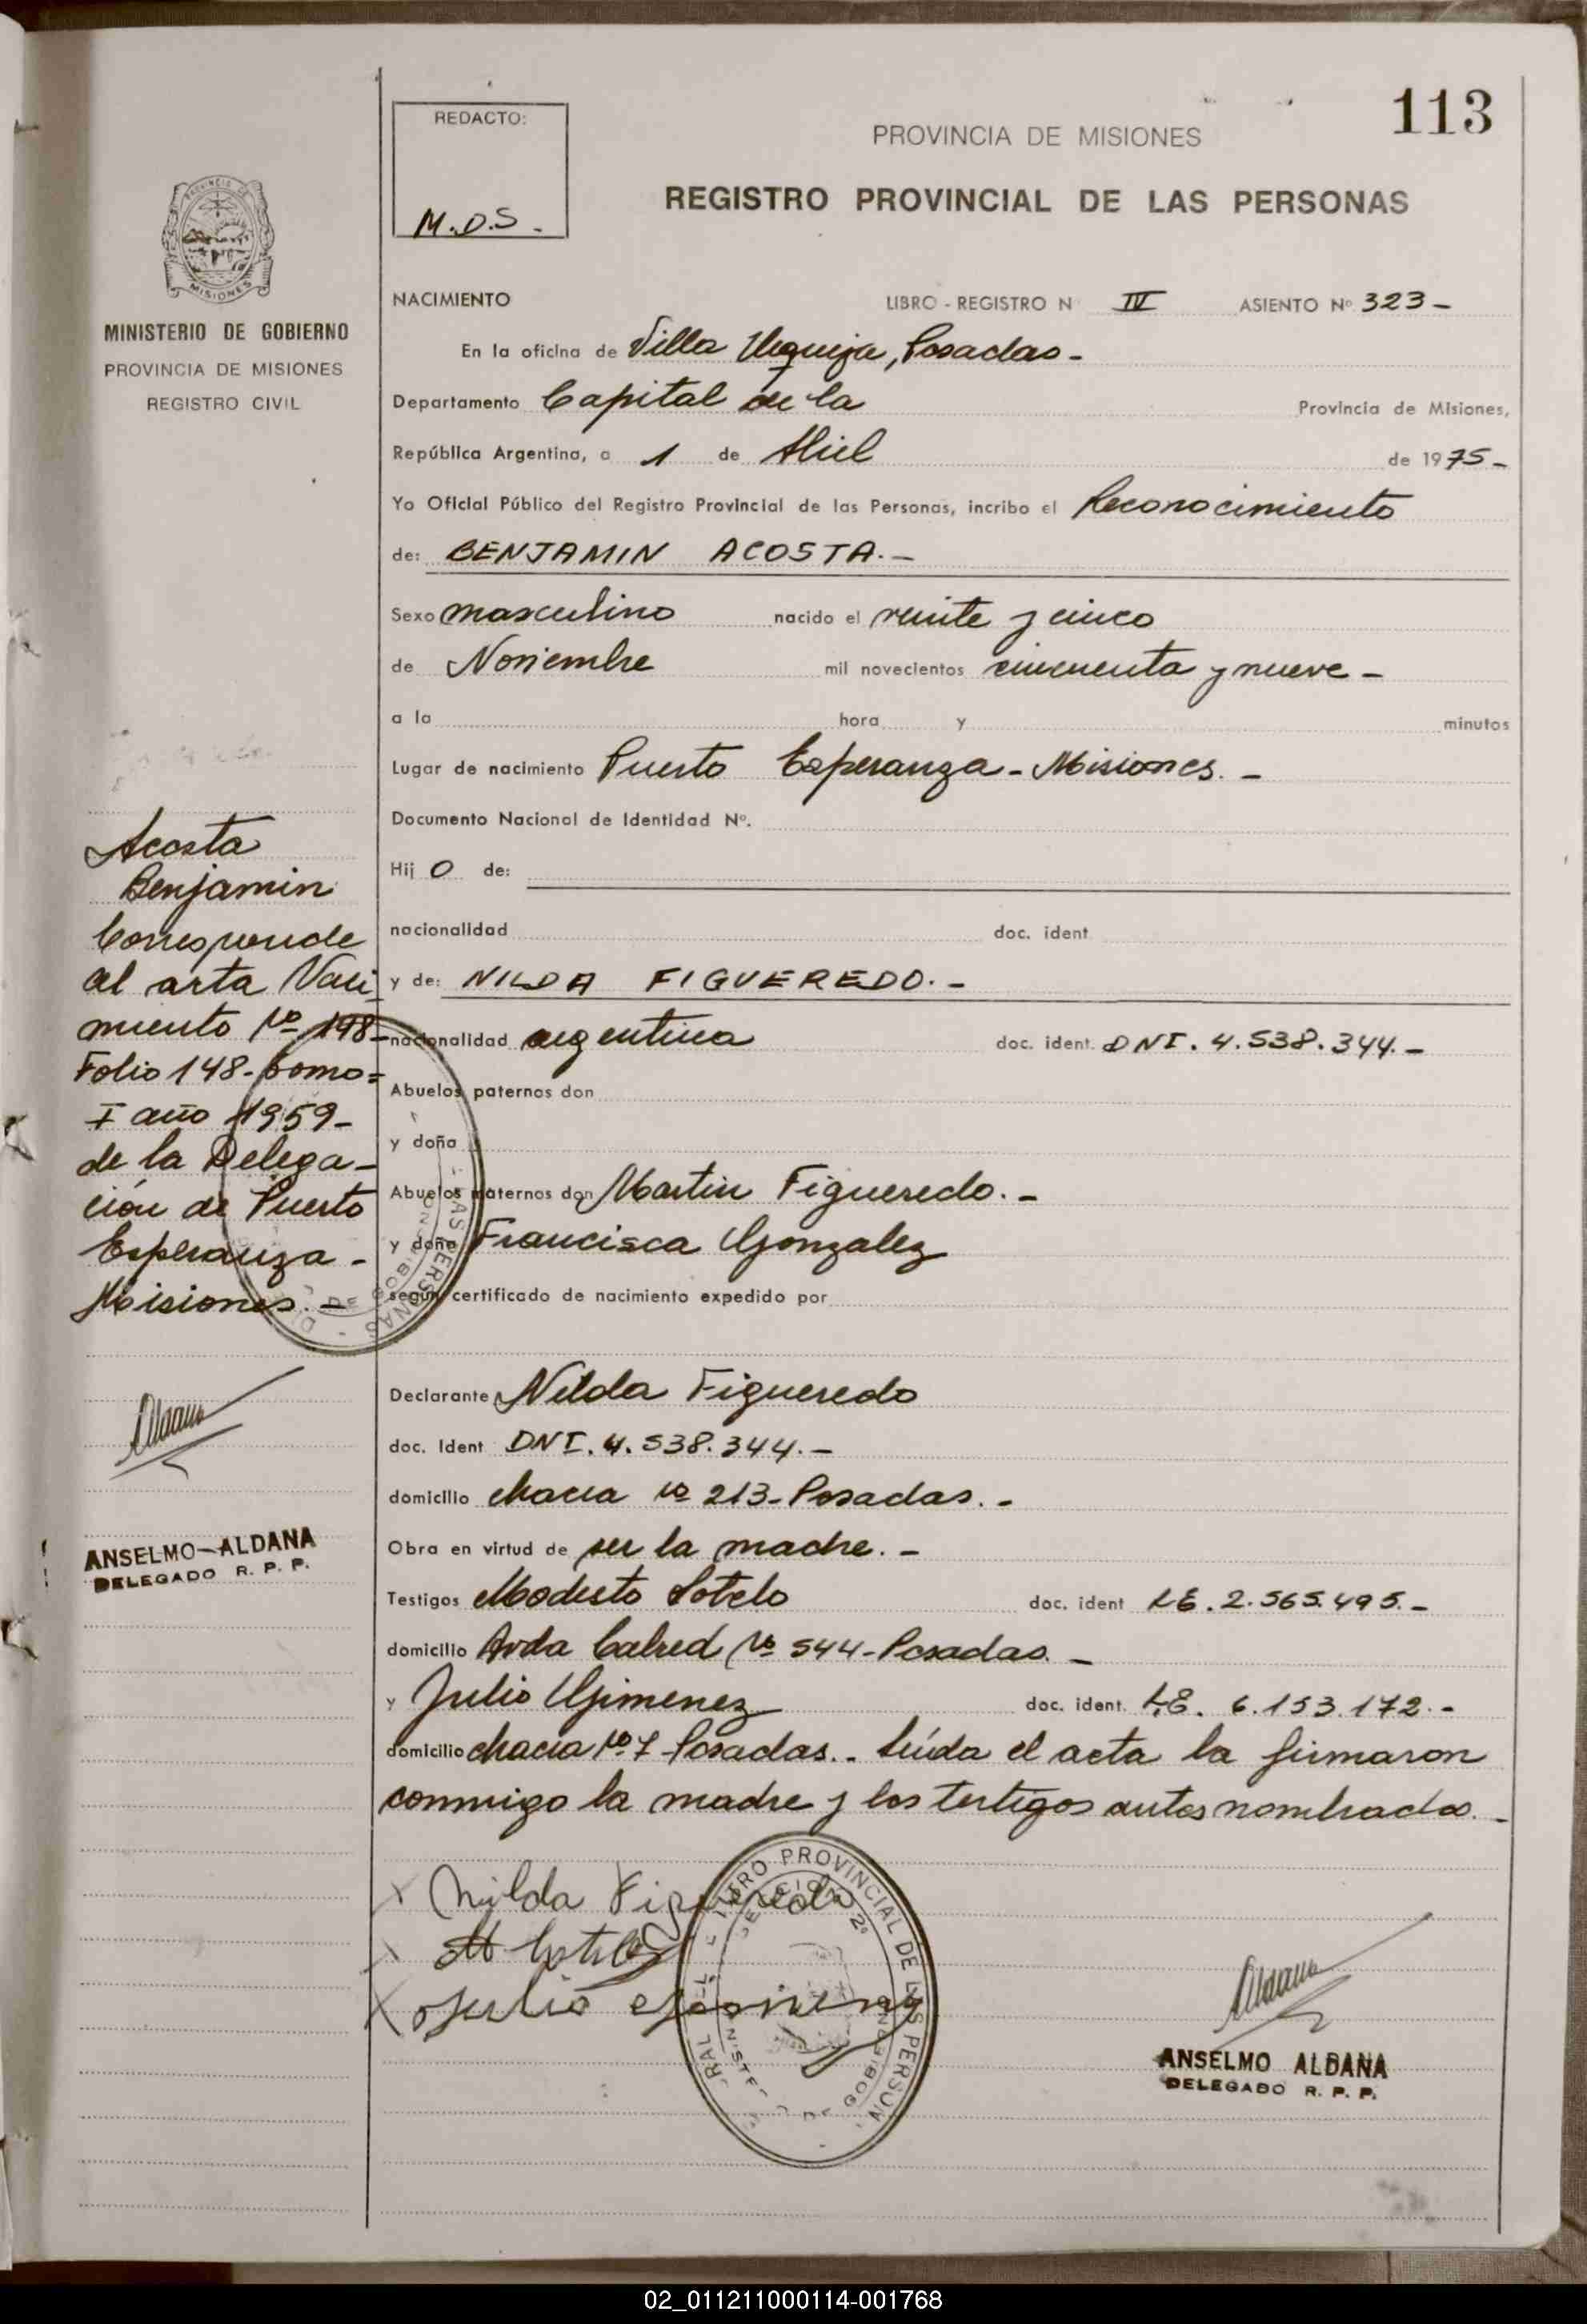 113
REDACTO:
M.D.S.-
PROVINCIA DE MISIONES
REGISTRO PROVINCIAL DE LAS PERSONAS
MISIONES
MINISTERIO DE GOBIERNO
PROVINCIA DE MISIONES
REGISTRO CIVIL
NACIMIENTO LIBRO - REGISTRO N IV ASIENTO Nº 323-
En la oficina de Villa Urquiza, Posadas-
Departamento Capital de la Provincia de Misiones,
República Argentina, a 1 de Abril de 1975-
Yo Oficial Público del Registro Provincial de las Personas, incribo el Reconocimiento
de: BENJAMIN ACOSTA.-
Sexo masculino nacido el veinte y cinco
de Noviembre mil novecientos cincuenta y nueve-
a la hora y minutos
Lugar de nacimiento Puerto Esperanza-Misiones.-
Documento Nacional de Identidad Nº.
Hij o de:
nacionalidad doc. ident
y de: NILDA FIGUEREDO.-
nacionalidad argentina doc. ident. DNI. 4.538.344.-
Abuelos paternos don
y doña
Abuelos maternos don Martin Figueredo.-
y doña Francisca Gonzalez
según certificado de nacimiento expedido por
Declarante Nilda Figueredo
doc. Ident DNI. 4.538.344.-
domicilio chacra nº 213-Posadas.-
Obra en virtud de ser la madre.-
Testigos Modesto Sotelo doc. ident LE. 2.565.495.-
domicilio Avda Cabred Nº 544-Posadas.-
y Julio Gimenez doc. ident. LE. 6.153.172.-
domicilio chacra Nº 7-Posadas.- Leída el acta la firmaron
conmigo la madre y los testigos antes nombrados.-
Acosta
Benjamin
Corresponde
al acta Naci
miento Nº 198-
Folio 148-Tomo=
I año 1959-
de la Delega-
ción de Puerto
Esperanza-
Misiones.-
Aldana
ANSELMO ALDANA
DELEGADO R. P. P.
X Nilda Figueredo
X M Sotelo
X Julio Gimenez
PROVINCIAL DE LAS PERSON
SECCION 2ª
Aldana
ANSELMO ALDANA
DELEGADO R. P. P.
02_011211000114-001768